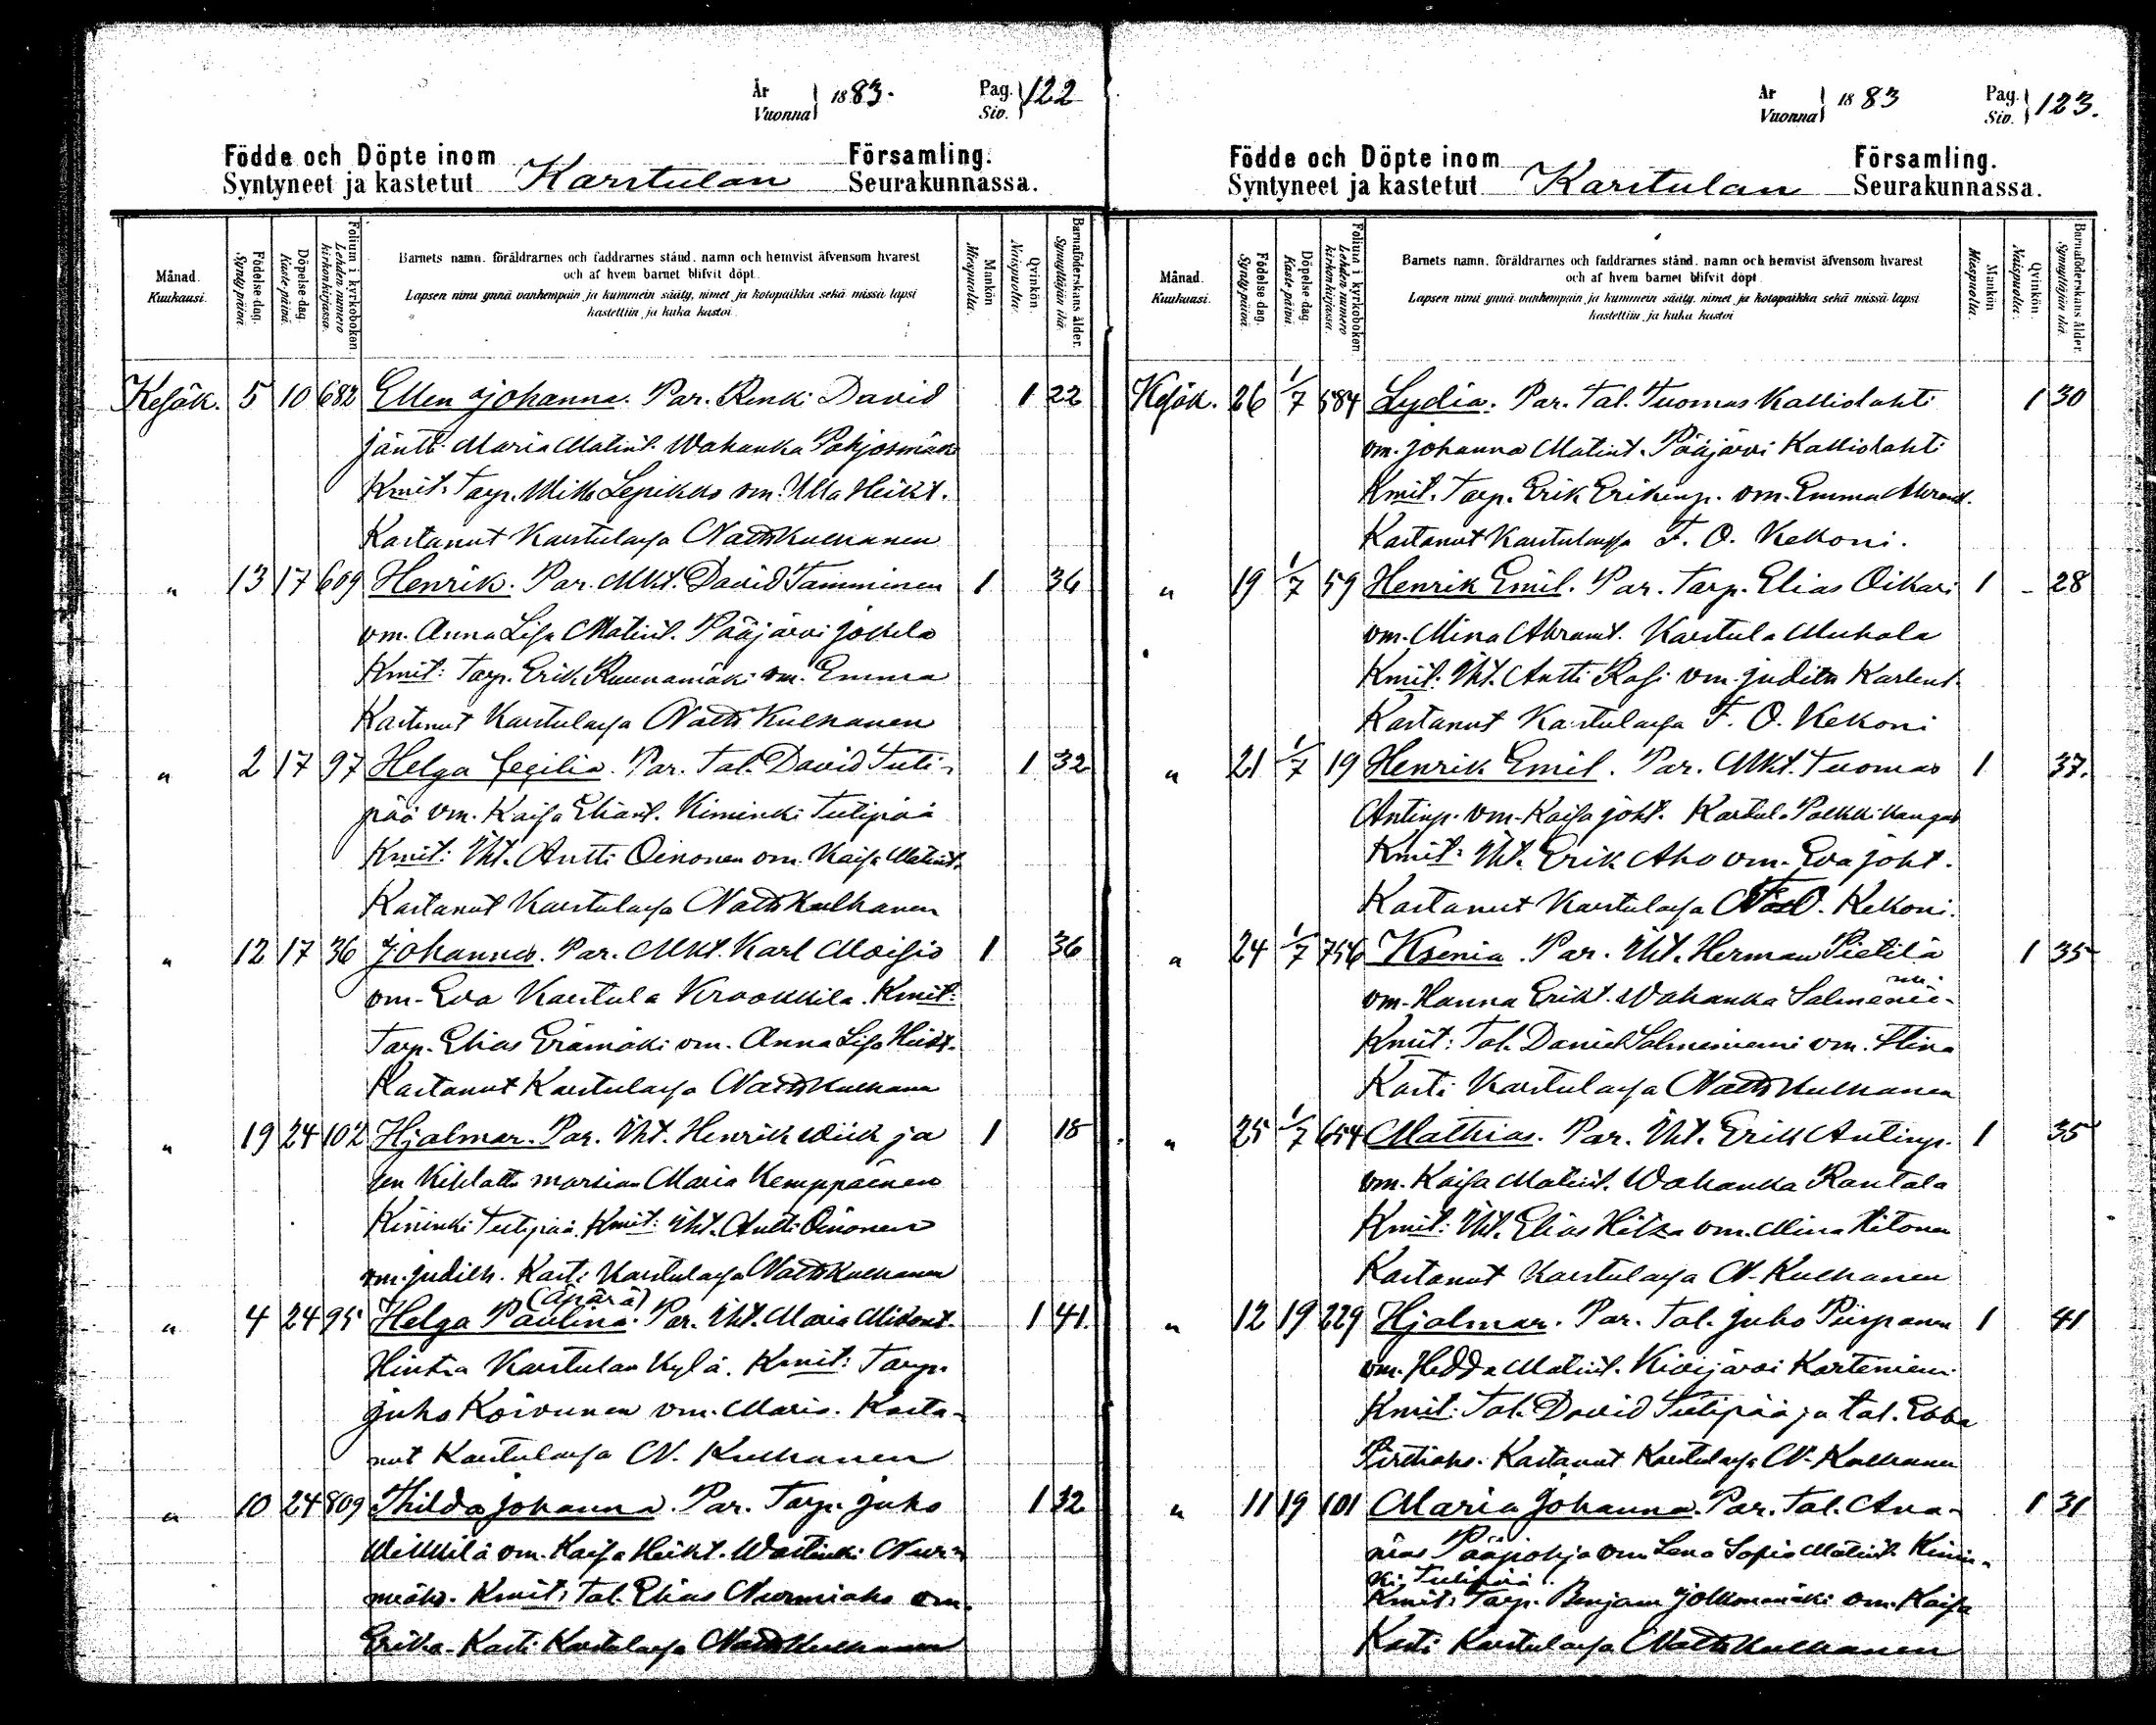 År Vuonna 1883. Pag. Siv. 122
Födde och Döpte inom Församling.
Syntyneet ja kastetut Karstulan Seurakunnassa.
Månad. Kuukausi.
Födelse dag. Synty päivä.
Döpelse dag. Kaste päivä.
Folium i kyrkoboken Lehden numero kirkonkirjassa.
Barnets namn, föräldrarnes och faddrarnes stånd, namn och hemvist äfvensom hvarest
och af hvem barnet blifvit döpt.
Lapsen nimi ynnä vanhempain ja kummein sääty, nimet ja kotopaikka sekä missä lapsi
kastettiin ja kuka kastoi
Mankön Miespuolia.
Qvinkön. Naispuolia.
Barnaföderskans ålder. Synnyttäjän ikä.
Kesäk. 5 10 682 Ellen Johanna. Par. Renk. David 1 22
Jäntti Maria Matint. Wahanka Pohjosmäki
Kmit. Tarp. Mikko Lepikko vm. Ulla Heikt.
Kastanut Karstulassa Natti Kulhanen
" 13 17 609 Henrik. Par. Mkt. David Tamminen 1 36
vm. Anna Lisa Matint. Pääjärvi Jokela
Kmit: Tarp. Erik Ruunamäki vm. Emma
Kastanut Karstulassa Natti Kulhanen
" 2 17 97 Helga Cecilia. Par. Tal. David Tuli- 1 32
pää vm. Kaisa Eliant. Kiminki Tulipää
Kmit: Iht. Antti Oinonen vm. Kaisa Matint.
Kastanut Karstulassa Natti Kulhanen
" 12 17 36 Johannes. Par. Mkt. Karl Moisio 1 36
vm. Eva Karstula Krookkila. Kmit:
Tarp. Elias Erämäki vm. Anna Lisa Heikt.
Kastanut Karstulassa Natti Kulhanen
" 19 24 102 Hjalmar. Par. Iht. Henrik Wiik ja 1 18
sen Kihlattu morsian Maria Kemppainen
Kiminki Tulipää. Kmit: Iht. Antti Oinonen
vm. Judith. Kasti Karstulassa Natti Kulhanen
(Äpärä)
" 4 24 95 Helga Paulina. Par. Iht. Maria Mikont. 1 41.
Hintsa Karstulan Kylä. Kmit: Tarp.
Juho Koivunen vm. Maria. Kasta-
nut Karstulassa N. Kulhanen
" 10 24 809 Thilda Johanna. Par. Tarp. Juho 1 32
Wikkilä vm. Kaisa Heikt. Wastinki Nur-
miaho. Kmit: Tal. Elias Nurmiaho vm.
Erika. Kasti Karstulassa Natti Kulhanen
År Vuonna 1883 Pag. Siv. 123.
Födde och Döpte inom Församling.
Syntyneet ja kastetut Karstulan Seurakunnassa.
Månad. Kuukausi.
Födelse dag. Synty päivä.
Döpelse dag. Kaste päivä.
Folium i kyrkoboken Lehden numero kirkonkirjassa.
Barnets namn, föräldrarnes och faddrarnes stånd, namn och hemvist äfvensom hvarest
och af hvem barnet blifvit döpt
Lapsen nimi ynnä vanhempain ja kummein sääty, nimet ja kotopaikka sekä missä lapsi
kastettiin ja kuka kastoi
Mankön Miespuolia.
Qvinkön. Naispuolia.
Barnaföderskans ålder. Synnyttäjän ikä.
Kesäk. 26 1/7 584 Lydia. Par. Tal. Tuomas Kalliolahti 1 30
vm. Johanna Matint. Pääjärvi Kalliolahti
Kmit. Tarp. Erik Erikinp. vm. Emma Abramt.
Kastanut Karstulassa F. O. Kekoni.
" 19 1/7 59 Henrik Emil. Par. Tarp. Elias Oikari 1 - 28
vm. Mina Abramt. Karstula Muhola
Kmit. Iht. Antti Rasi vm. Judith Karlent.
Kastanut Karstulassa F. O. Kekoni
" 21 1/7 19 Henrik Emil. Par. Mkt. Tuomas 1 37.
Antinp. vm. Kaisa Joht. Karstula Polkkikangas
Kmit: Iht. Erik Aho vm. Eva Joht.
Kastanut Karstulassa F. O. Kekoni.
" 24 1/7 756 Ksenia. Par. Iht. Herman Pietilä 1 35
vm. Hanna Erikt. Wahanka Salmenie-
mi
Kmit: Tal. Daniel Salmeniemi vm. Stina
Kasti Karstulassa Natti Kulhanen
" 25 1/7 654 Mathias. Par. Iht. Erik Antinp. 1 35
vm. Kaisa Matint. Wahanka Rantala
Kmit: Iht. Elias Hitza vm. Mina Hitonen
Kastanut Karstulassa N. Kulhanen
" 12 19 229 Hjalmar. Par. Tal. Juho Piispanen 1 41
vm. Hedda Matint. Kivijärvi Korteniemi
Kmit: Tal. David Tulipää ja tal. Ebba
Pirttiaho. Kastanut Karstulassa N. Kulhanen
" 11 19 101 Maria Johanna. Par. Tal. Ana- 1 31
nias Pääpohja vm Lena Sofia Matint. Kimin-
ki Tulipää.
Kmit: Tarp. Benjam Jolkonmäki vm. Kaisa
Kasti Karstulassa Natti Kulhanen